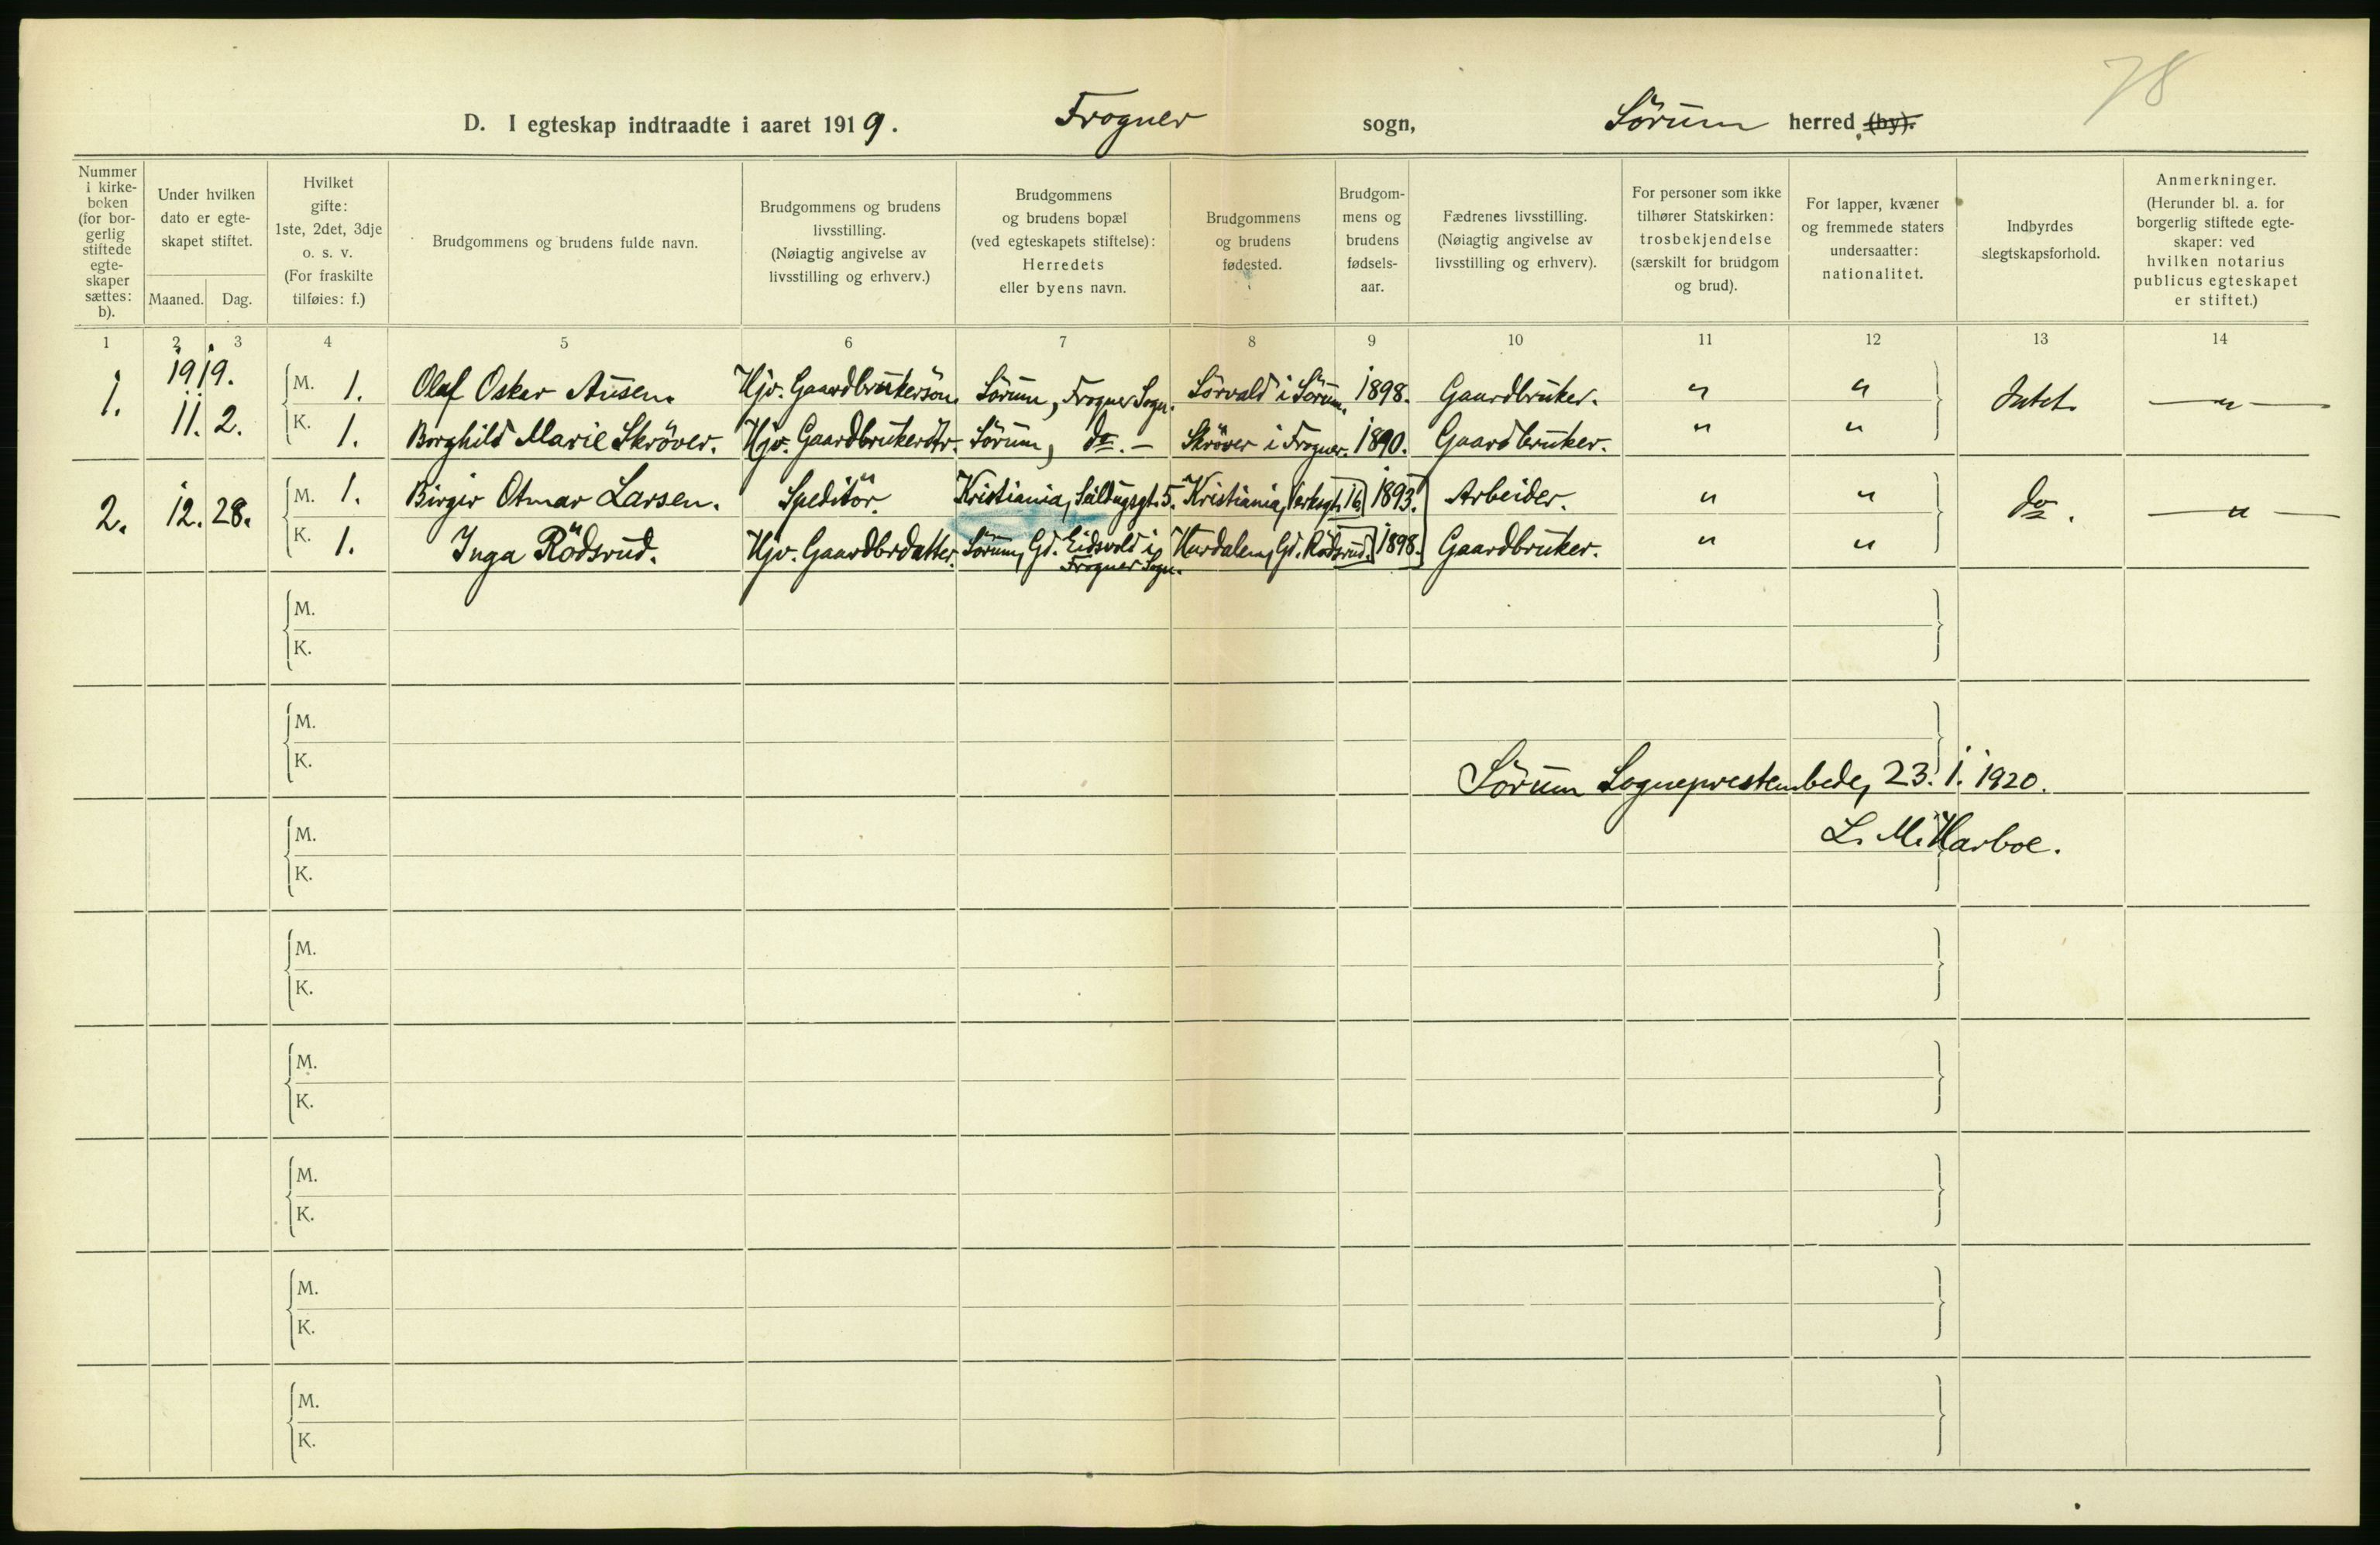 78
D. I egteskap indtraadte i aaret 1919. Frogner sogn, Sörum herred (by).
Nummer i kirke-boken (for bor-gerlig stiftede egte-skaper sættes: b).
Under hvilken dato er egte-skapet stiftet.
Maaned. Dag.
Hvilket gifte: 1ste, 2det, 3dje o. s. v. (For fraskilte tilføies: f.)
Brudgommens og brudens fulde navn.
Brudgommens og brudens livsstilling. (Nøiagtig angivelse av livsstilling og erhverv.)
Brudgommens og brudens bopæl (ved egteskapets stiftelse): Herredets eller byens navn.
Brudgommens og brudens fødested.
Brudgom-mens og brudens fødsels-aar.
Fædrenes livsstilling. (Nøiagtig angivelse av livsstilling og erhverv).
For personer som ikke tilhører Statskirken: trosbekjendelse (særskilt for brudgom og brud).
For lapper, kvæner og fremmede staters undersaatter: nationalitet.
Indbyrdes slegtskapsforhold.
Anmerkninger. (Herunder bl. a. for borgerlig stiftede egte-skaper: ved hvilken notarius publicus egteskapet er stiftet.)
1 2 3 4 5 6 7 8 9 10 11 12 13 14
1919.
1. 11. 2. M. 1. Olaf Oskar Ausen. Hjv. Gaardbrukersön. Sörum, Frogner Sogn. Sörvald i Sörum. 1898. Gaardbruker. " " Intet. — " —
K. 1. Borghild Marie Skröver. Hjv. Gaardbrukerdtr. Sörum, do. — Skröver i Frogner. 1890. Gaardbruker. " "
2. 12. 28. M. 1. Birger Otmar Larsen. Speditör. Kristiania, 5. Kristiania, 16. 1893. Arbeider. " " do. — " —
K. 1. Inga Rödsrud. Hjv. Gaardbrdatter. Sörum, Gd. Eidsvold i Frogner Sogn. Hurdalen, Gd. Rödsrud. 1898. Gaardbruker. " "
M.
K.
M.
K.
Sörum Sogneprestembede, 23. 1. 1920.
M.
L. M. Harboe.
K.
M.
K.
M.
K.
M.
K.
M.
K.
M.
K.